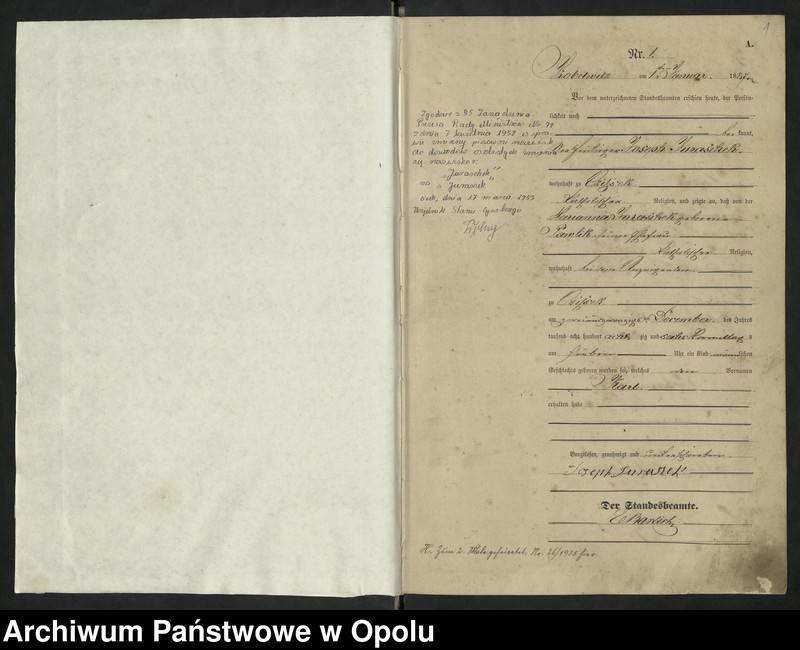 1
A.
Nr. 1.
am 1. Januar 18
Vor dem unterzeichneten Standesbeamten erschien heute, der Persön-
lichkeit nach
be kannt,
Joseph Juraschek
wohnhaft zu
katholischer Religion, und zeigte an, daß von der
Marianna Juraschek geborene
Pawlik seiner Ehefrau
katholischer Religion,
wohnhaft bei dem Anzeigenden
zu
am zweiundzwanzigsten December des Jahres
tausend acht hundert acht zig und sechs Vormittag s
um sieben Uhr ein Kind männlichen
Geschlechts geboren worden sei, welches den Vornamen
Karl
erhalten habe
Vorgelesen, genehmigt und unterschrieben
Joseph Juraschek
Der Standesbeamte.
Zgodnie z § 5 Zarządzenia
Prezesa Rady Ministrów Nr
z dnia 7 kwietnia 1952 w spra
wie zmiany pisowni nazwisk
do dowodów osobistych zmienia
się nazwisko z:
"Juraschek"
na "Juraszek"
dnia 17 marca 1953
Urzędnik Stanu Cywilnego
Nr. 26/1915 hier.
Archiwum Państwowe w Opolu